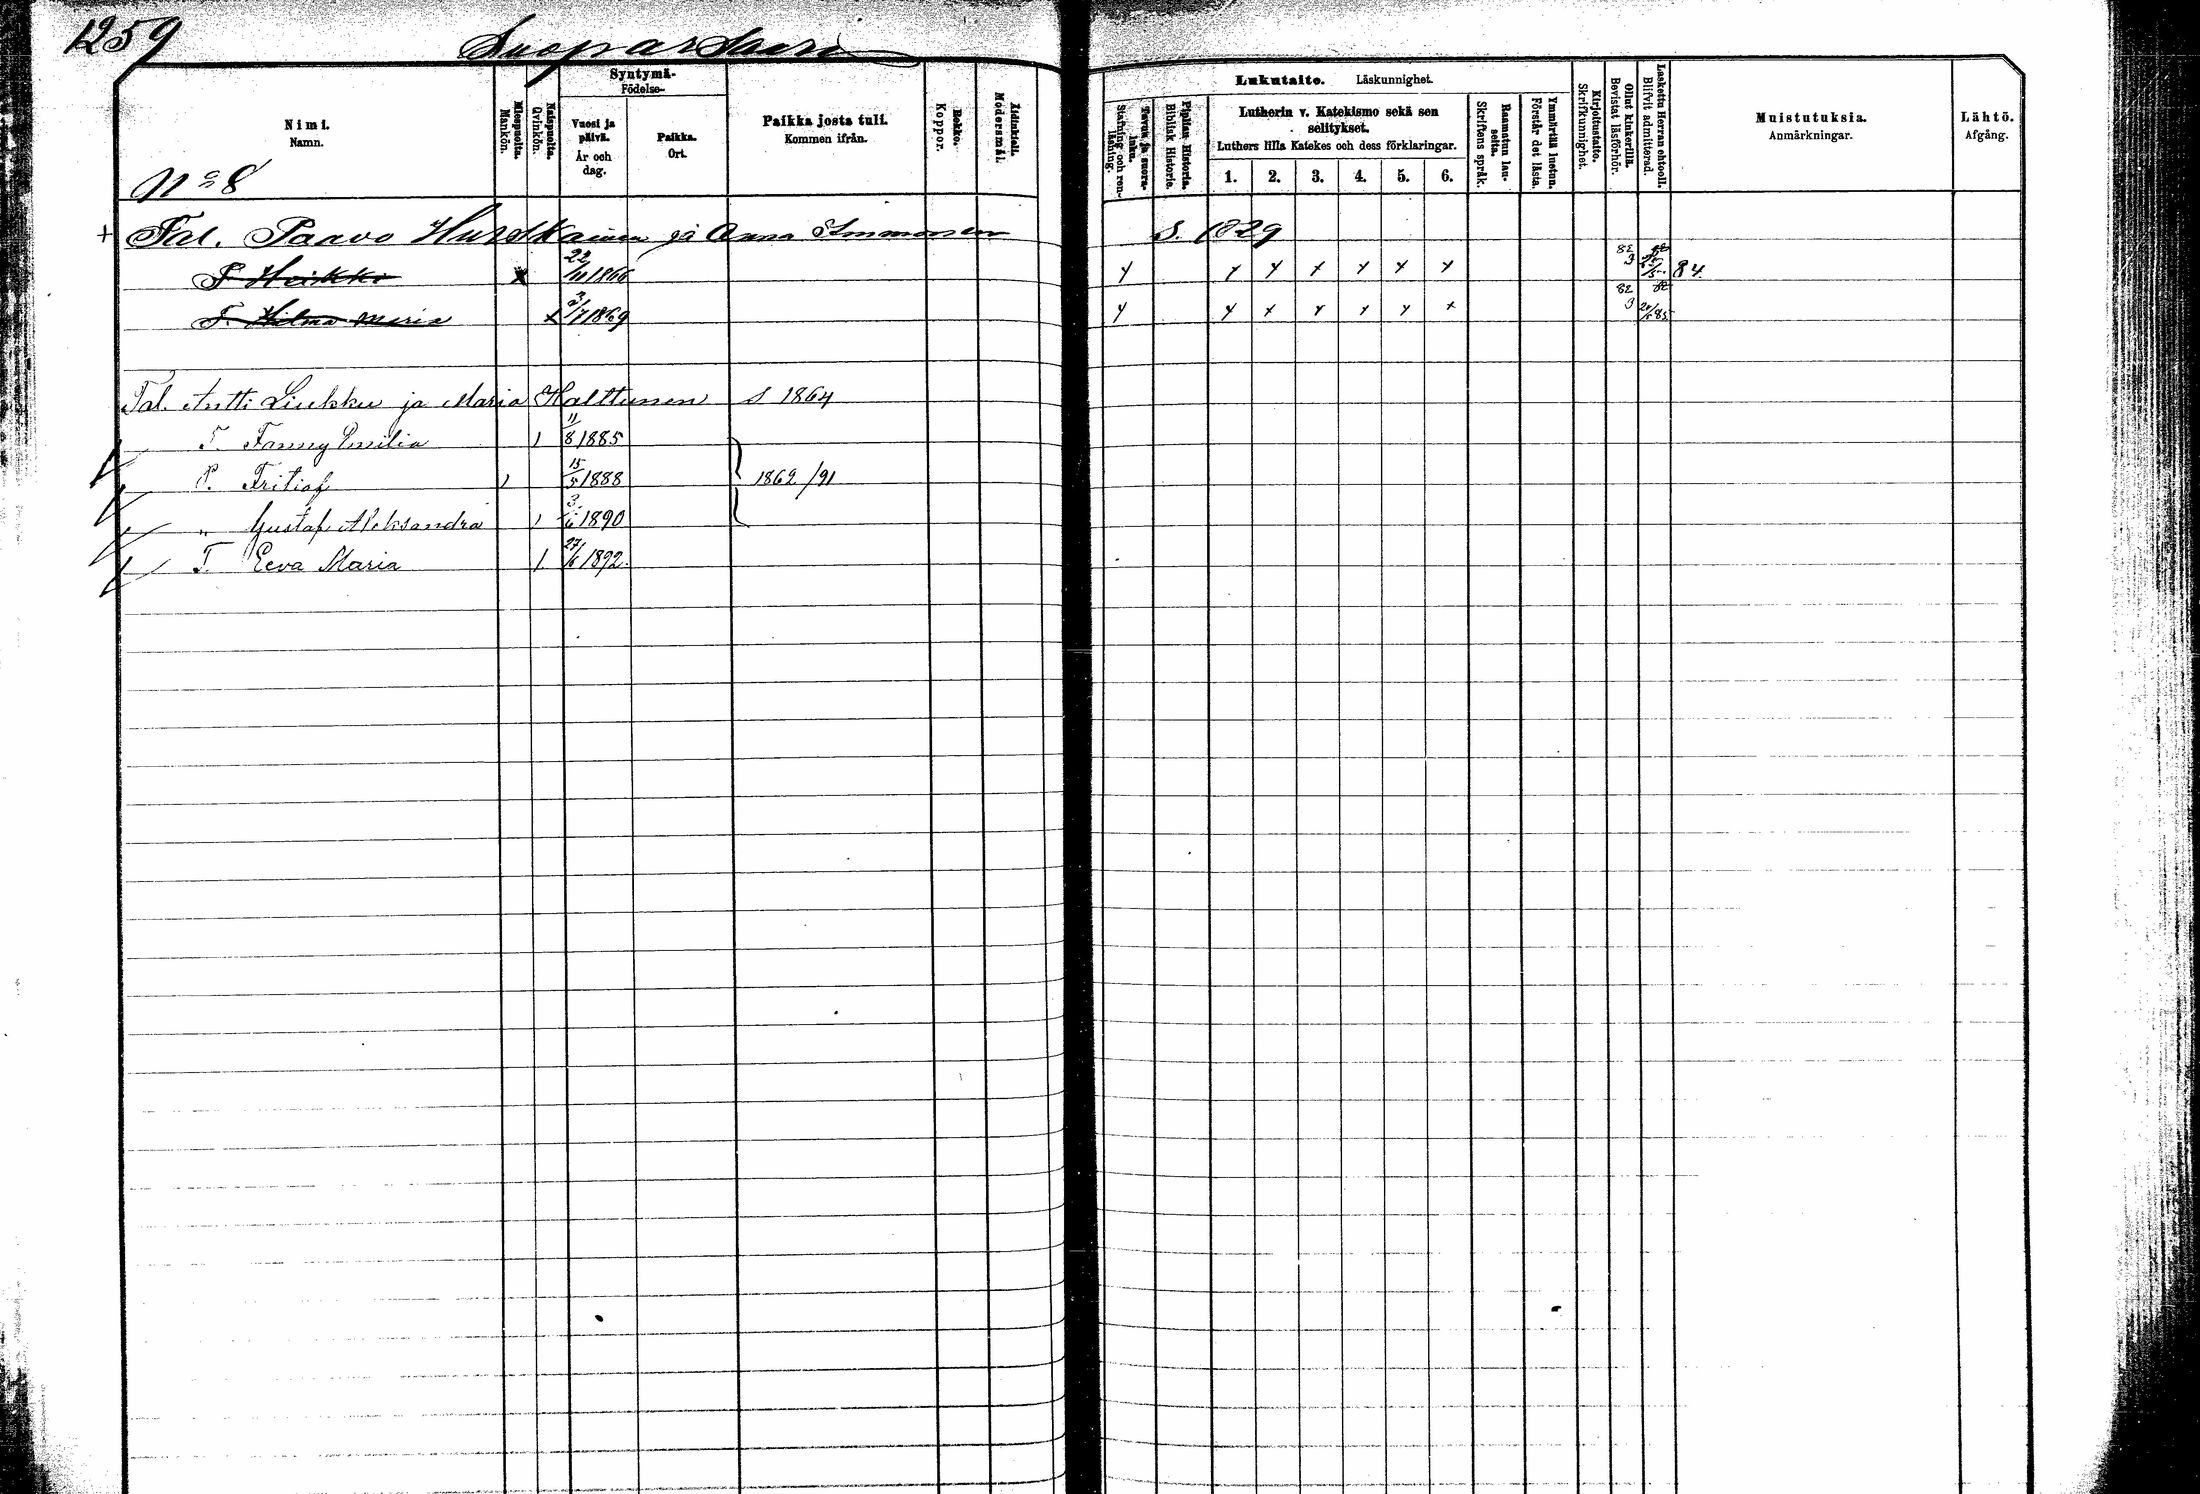 1259
Suoparsaari
Nimi.
Namn.
Miespuolta.
Mankön.
Naispuolta.
Qvinkön.
Syntymä-
Födelse-
Vuosi ja päivä.
År och dag.
Paikka.
Ort.
Paikka josta tuli.
Kommen ifrån.
Rokko.
Koppor.
Äidinkieli.
Modersmål.
Lukutaito. Läskunnighet.
Tavuu ja suora-luku.
Stafning och ren-läsning.
Piplian Historia.
Biblisk Historie.
Lutherin v. Katekismo sekä sen selitykset.
Luthers lilla Katekes och dess förklaringar.
1. 2. 3. 4. 5. 6.
Raamatun lau-seita.
Skriftens språk.
Ymmärtää luetun.
Förstår det lästa.
Kirjoitustaito.
Skrifkunnighet.
Ollut kinkerillä.
Bevistat läsförhör.
Laskettu Herran ehtooll.
Blifvit admitterad.
Muistutuksia.
Anmärkningar.
Lähtö.
Afgång.
No 8
+ Tal. Paavo Hurskainen ja Anna Immonen S. 1329
P. Heikki x 22/11 1866 x x x x x x x 82 3 84
T. Hilma Maria x 3/7 1869 x x x x x x x 82 3 82 85
Tal. Antti Liukku ja Maria Halttunen S 1864
T. Fanny Emilia 1 11/8 1885
P. Fritiof 1 15/5 1888 1862/91
" Gustaf Aleksandra 1 3/6 1890
T. Eeva Maria 1. 27/6 1892.